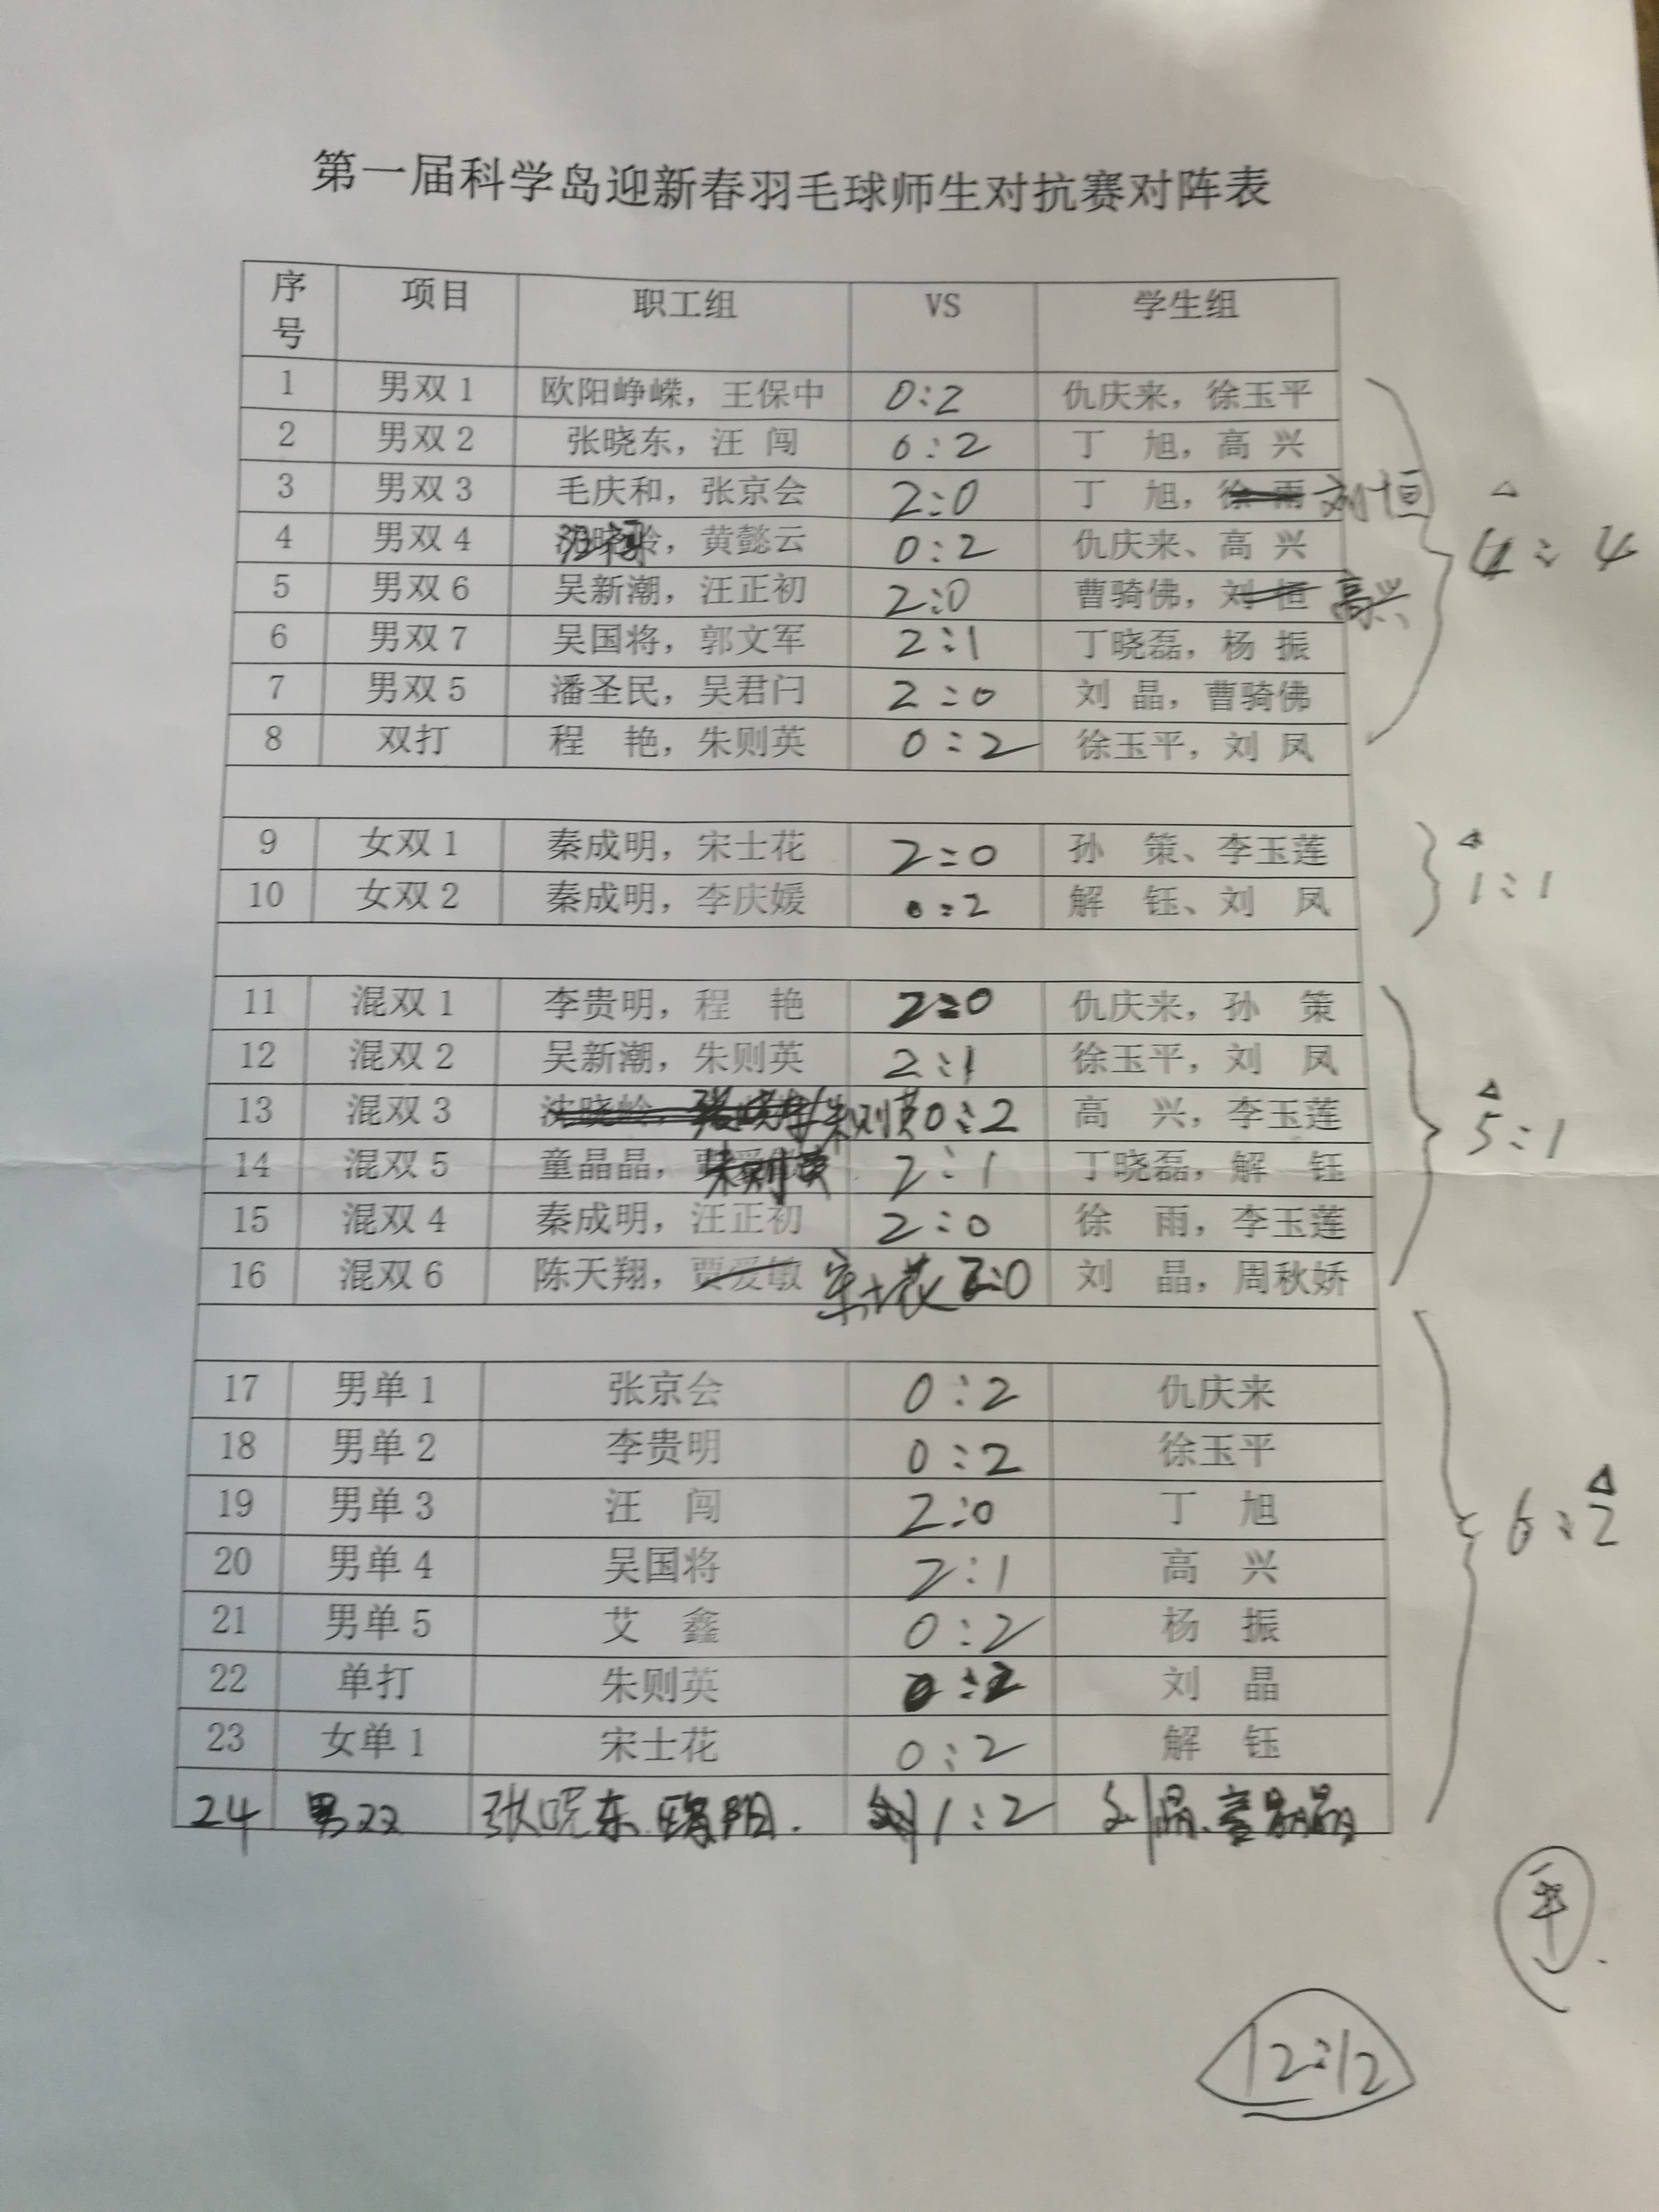 第一届科学岛迎新春羽毛球师生对抗赛对阵表
序号 项目 职工组 VS 学生组
1 男双1 欧阳峥嵘，王保中 0:2 仇庆来，徐玉平
2 男双2 张晓东，汪 闯 0:2 丁 旭，高 兴
3 男双3 毛庆和，张京会 2:0 丁 旭，徐 雨 刘恒
4 男双4 黄懿云 0:2 仇庆来、高 兴
△
4:4
5 男双6 吴新潮，汪正初 2:0 曹骑佛，刘 恒 高兴
6 男双7 吴国将，郭文军 2:1 丁晓磊，杨 振
7 男双5 潘圣民，吴君闩 2:0 刘 晶，曹骑佛
8 双打 程 艳，朱则英 0:2 徐玉平，刘 凤
9 女双1 秦成明，宋士花 2:0 孙 策、李玉莲
△
1:1
10 女双2 秦成明，李庆媛 0:2 解 钰、刘 凤
11 混双1 李贵明，程 艳 2:0 仇庆来，孙 策
12 混双2 吴新潮，朱则英 2:1 徐玉平，刘 凤
13 混双3 沈晓岭， 朱则英 0:2 高 兴，李玉莲
△
5:1
14 混双5 童晶晶，朱则英 2:1 丁晓磊，解 钰
15 混双4 秦成明，汪正初 2:0 徐 雨，李玉莲
16 混双6 陈天翔，贾爱敏 宋士花 2:0 刘 晶，周秋娇
17 男单1 张京会 0:2 仇庆来
18 男单2 李贵明 0:2 徐玉平
19 男单3 汪 闯 2:0 丁 旭
△
6:2
20 男单4 吴国将 2:1 高 兴
21 男单5 艾 鑫 0:2 杨 振
22 单打 朱则英 0:2 刘 晶
23 女单1 宋士花 0:2 解 钰
24 男双 张晓东 欧阳. 1:2 刘晶、童晶晶
平.
12:12